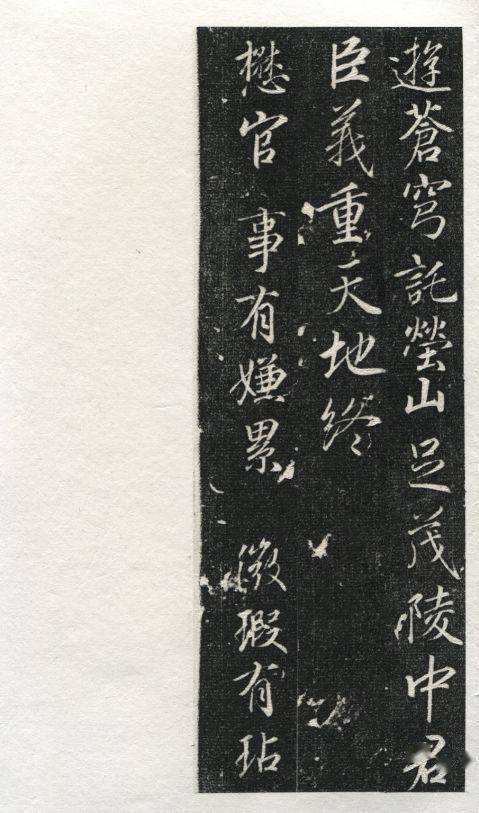 遊蒼穹託塋山足茂陵中君
臣義重天地終
懋官 事有嫌累 微瑕有玷